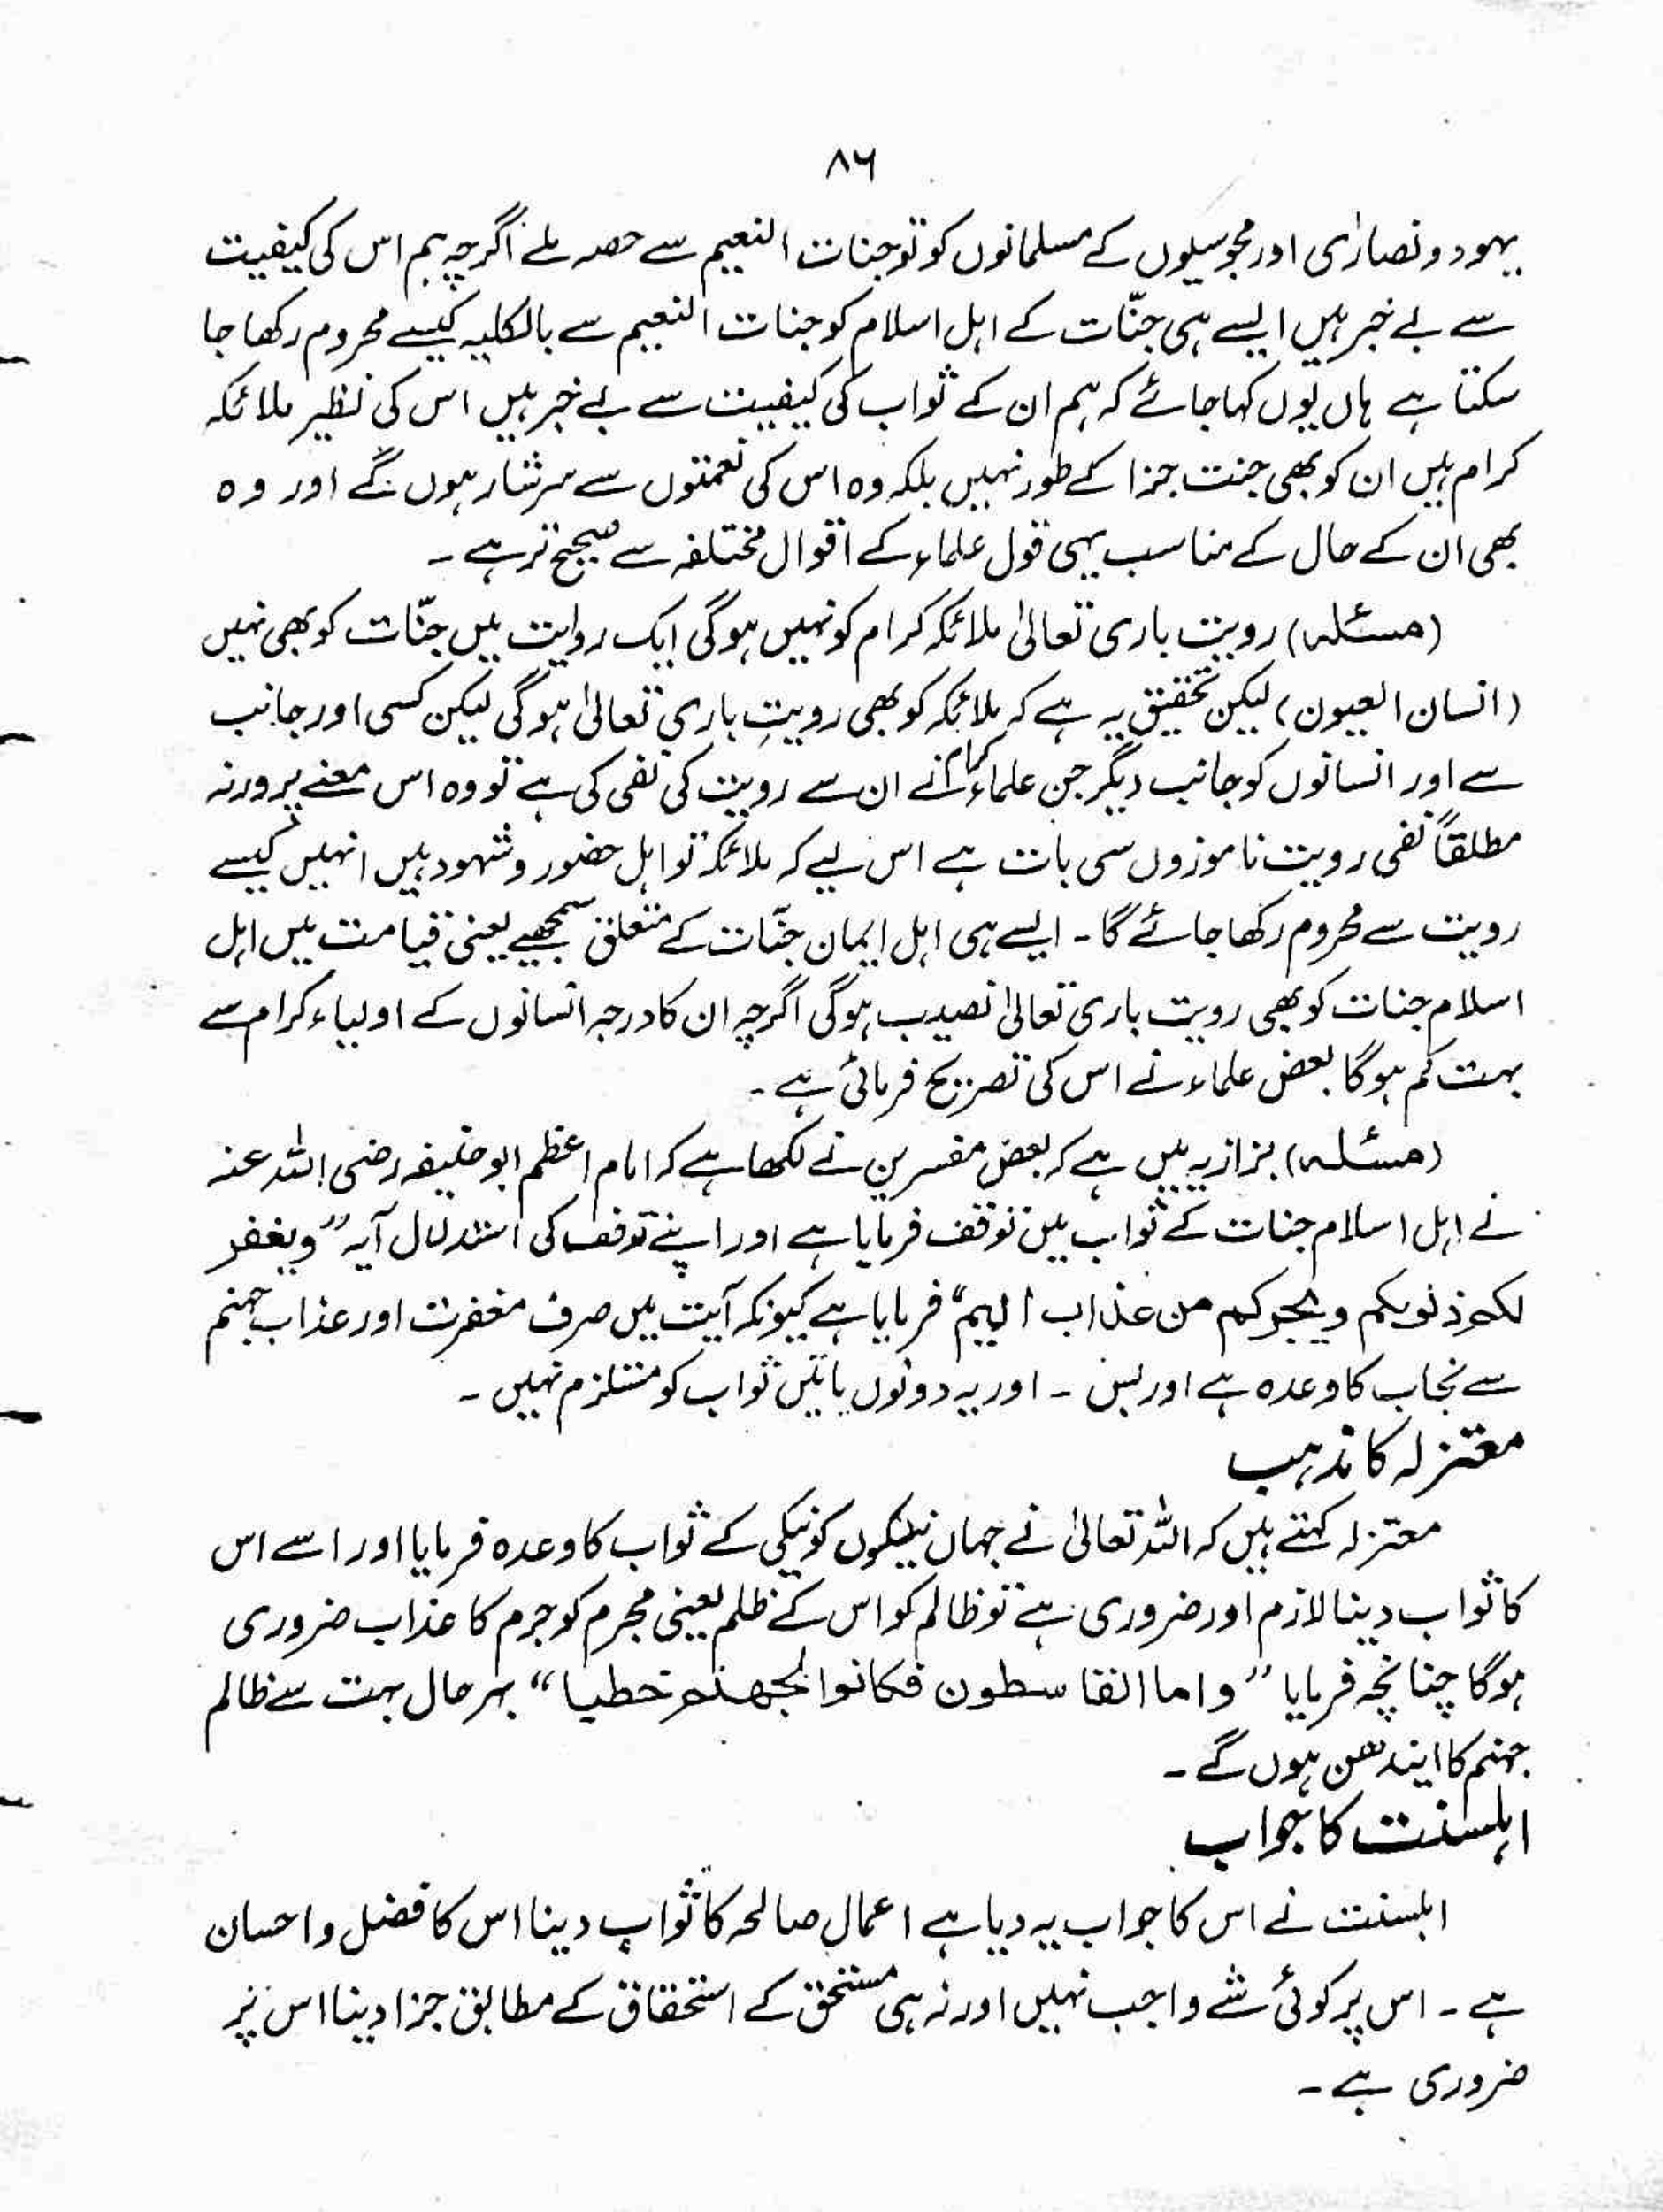 ۸۶
یہود و نصارٰی اور مجوسیوں کے مسلمانوں کو تو جنات النعیم سے حصہ ملے اگرچہ ہم اس کی کیفیت
سے بے خبر ہیں ایسے ہی جنّات کے اہل اسلام کو جنات النعیم سے بالکلیہ کیسے محروم رکھا جا
سکتا ہے ہاں یوں کہا جائے کہ ہم ان کے ثواب کی کیفیت سے بے خبر ہیں اس کی نظیر ملائکہ
کرام ہیں ان کو بھی جنت جزا کے طور نہیں بلکہ وہ اس کی نعمتوں سے سرشار ہوں گے اور وہ
بھی ان کے حال کے مناسب یہی قول علماء کے اقوال مختلفہ سے صحیح تر ہے ۔
(مسئلہ) رویت باری تعالیٰ ملائکہ کرام کو نہیں ہوگی ایک روایت میں جنّات کو بھی نہیں
(انسان العیون) لیکن تحقیق یہ ہے کہ ملائکہ کو بھی رویتِ باری تعالیٰ ہوگی لیکن کسی اور جانب
سے اور انسانوں کو جانب دیگر جن علماء کرام نے ان سے رویت کی نفی کی ہے تو وہ اس معنے پر ورنہ
مطلقاً نفی رویت ناموزوں سی بات ہے اس لیے کہ ملائکہ تو اہل حضور و شہود ہیں انہیں کیسے
رویت سے محروم رکھا جائے گا ۔ ایسے ہی اہل ایمان جنّات کے متعلق سمجھیے یعنی قیامت میں اہل
اسلام جنات کو بھی رویت باری تعالیٰ نصیب ہوگی اگرچہ ان کا درجہ انسانوں کے اولیاء کرام سے
بہت کم ہوگا بعض علماء نے اس کی تصریح فرمائی ہے ۔
(مسئلہ) بزازیہ میں ہے کہ بعض مفسرین نے لکھا ہے کہ امام اعظم ابوحنیفہ رضی اللہ عنہ
نے اہل اسلام جنات کے ثواب میں توقف فرمایا ہے اور اپنے توقف کی استدلال آیہ ”ویغفر
لکم ذنوبکم ویجرکم من عذاب الیم“ فرمایا ہے کیونکہ آیت میں صرف مغفرت اور عذاب جہنم
سے نجاب کا وعدہ ہے اور بس ۔ اور یہ دونوں باتیں ثواب کو مستلزم نہیں ۔
معتزلہ کا مذہب
معتزلہ کہتے ہیں کہ اللہ تعالیٰ نے جہان نیکوں کو نیکی کے ثواب کا وعدہ فرمایا اور اسے اس
کا ثواب دینا لازم اور ضروری ہے تو ظالم کو اس کے ظلم یعنی مجرم کو جرم کا عذاب ضروری
ہوگا چنانچہ فرمایا ”واما القاسطون فکانوا لجھنم حطبا“ بہرحال بہت سے ظالم
جہنم کا ایندھن ہوں گے ۔
اہلسنت کا جواب
اہلسنت نے اس کا جواب یہ دیا ہے اعمال صالحہ کا ثواب دینا اس کا فضل و احسان
ہے ۔ اس پر کوئی شے واجب نہیں اور نہ ہی مستحق کے استحقاق کے مطابق جزا دینا اس پر
ضروری ہے ۔